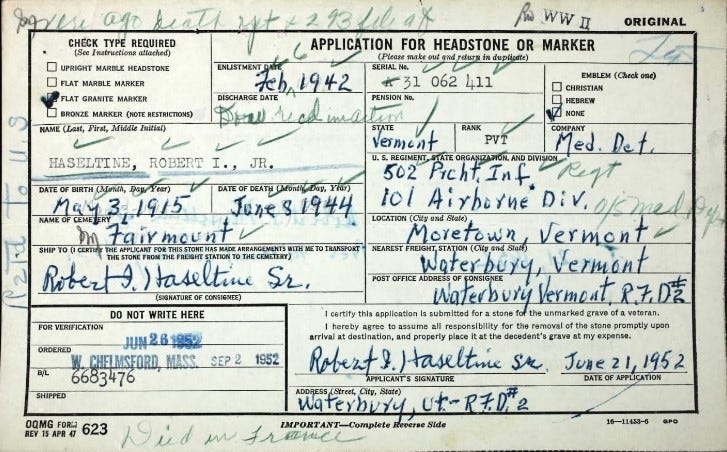 death rpt & 293 file
Rw WW II
ORIGINAL
CHECK TYPE REQUIRED
(See Instructions attached)
UPRIGHT MARBLE HEADSTONE
FLAT MARBLE MARKER
FLAT GRANITE MARKER
BRONZE MARKER (NOTE RESTRICTIONS)
APPLICATION FOR HEADSTONE OR MARKER
(Please make out and return in duplicate)
ENLISTMENT DATE
6
Feb, 1942
DISCHARGE DATE
SERIAL No.
31 062 411
PENSION No.
EMBLEM (Check one)
CHRISTIAN
HEBREW
NONE
STATE
Vermont
RANK
PVT
COMPANY
Med. Det.
NAME (Last, First, Middle Initial)
HASELTINE, ROBERT I., JR.
U. S. REGIMENT, STATE ORGANIZATION, AND DIVISION
502 Prcht. Inf. Regt
101 Airborne Div.
DATE OF BIRTH (Month, Day, Year)
May 3, 1915
DATE OF DEATH (Month, Day, Year)
June 8, 1944
NAME OF CEMETERY
Fairmount
LOCATION (City and State)
Moretown, Vermont
SHIP TO (I CERTIFY THE APPLICANT FOR THIS STONE HAS MADE ARRANGEMENTS WITH ME TO TRANSPORT
THE STONE FROM THE FREIGHT STATION TO THE CEMETERY)
Robert I. Haseltine Sr.
(SIGNATURE OF CONSIGNEE)
NEAREST FREIGHT STATION (City and State)
Waterbury, Vermont
POST OFFICE ADDRESS OF CONSIGNEE
Waterbury Vermont, R.F.D#2
DO NOT WRITE HERE
FOR VERIFICATION
JUN 26 1952
ORDERED
W. CHELMSFORD, MASS. SEP 2 1952
B/L
6683476
SHIPPED
I certify this application is submitted for a stone for the unmarked grave of a veteran.
I hereby agree to assume all responsibility for the removal of the stone promptly upon
arrival at destination, and properly place it at the decedent's grave at my expense.
Robert I. Haseltine Sr. June 21, 1952
APPLICANT'S SIGNATURE
DATE OF APPLICATION
ADDRESS (Street, City, State)
Waterbury, Vt - R.F.D.#2
OQMG FORM 623
REV 15 APR 47
IMPORTANT—Complete Reverse Side
16—11453-6 GPO
Died in France
Rztd To U.S